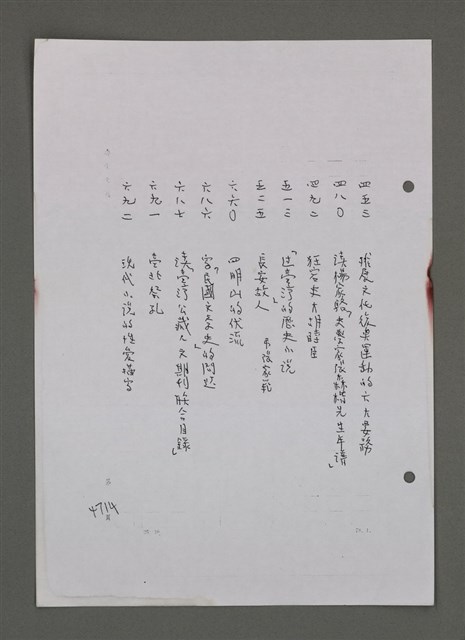 四五三　推展文化復興運動的六大要務
四八〇　讀楊家駱「史學家張森楷先生年譜」
四九二　狂宕史大胡醇臣
五一三　「過臺灣的歷史小說」
五二五　長安故人　弔張家範
六六〇　四明山的伏流
六八六　寫「民國文學史」的問題
六八七　讀「臺灣公藏人文期刊聯合目錄」
六九一　臺北祭孔
六九二　現代小說的性愛描寫
4714